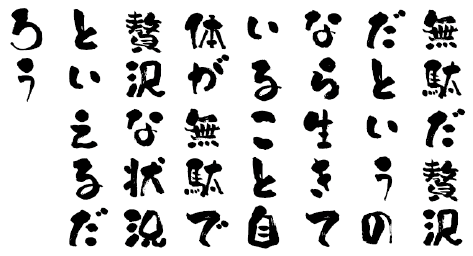 無駄だ贅沢
だというの
なら生きて
いること自
体が無駄で
贅沢な状況
といえるだ
ろう